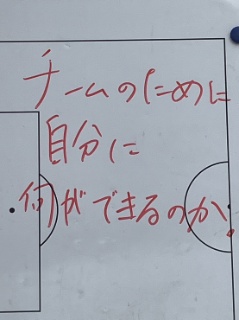 チームのために
自分に
何ができるのか。